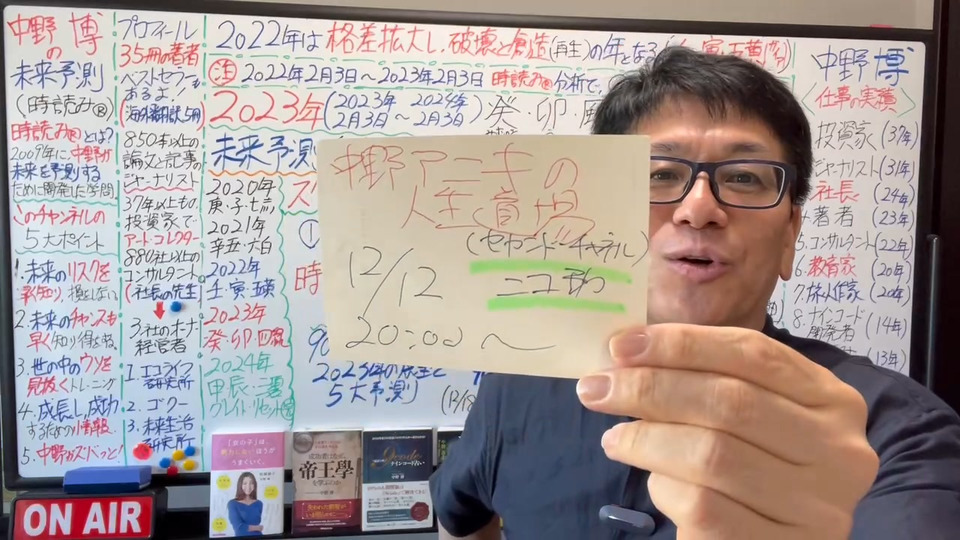 中野 博
の
未来予測
(時読み®)
時読み®とは?
2009年に、中野が
未来を予測する
ために開発した学問
このチャンネルの
5大ポイント
1.未来のリスクを
2.未来のチャンスを
早く知り得とな
3.世の中のウソを
見抜くトレーニング
4.成長し、成功
するための情報
5.中野がズバッと!
プロフィール
35冊の著者
ベストセラーも
あるよ!
(海外翻訳5冊)
850本以上の
論文と記事の
ジャーナリスト
37年以上もの
投資家で
アート・コレクター
880社以上の
コンサルタント
(社長の先生)
3社のオーナー
経営者
1.エコライフ
研究所
2.ゴクー
3.未来生活
研究所
2022年は 格差拡大し、破壊と創造(再生)の年となる
注 2022年2月3日〜2023年2月3日 時読み®分析で、
2023年(2023年2月3日〜2024年2月3日) 癸・卯
未来予測
2020年
庚・子・七赤
2021年
辛丑・六白
2022年
壬・寅・五黄
2023年
癸・卯・四緑
2024年
甲辰・三碧
グレイトリセット
5大予測
中野アニキの
人生道場
(セカンドチャンネル)
12/12 ニコ動
20:00〜
中野 博
〈仕事の実績〉
投資家(37年)
ジャーナリスト(31年)
3.社長(24年)
4.著者(23年)
5.コンサルタント(22年)
6.教育家(20年)
7.旅人作家(20年)
8.ナインコード
開発者(14年)
(13年)
帝王學
ナインコード占い
ON AIR